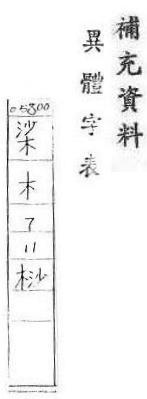 補充資料
異體字表
05300
桬
木
7
11
桫